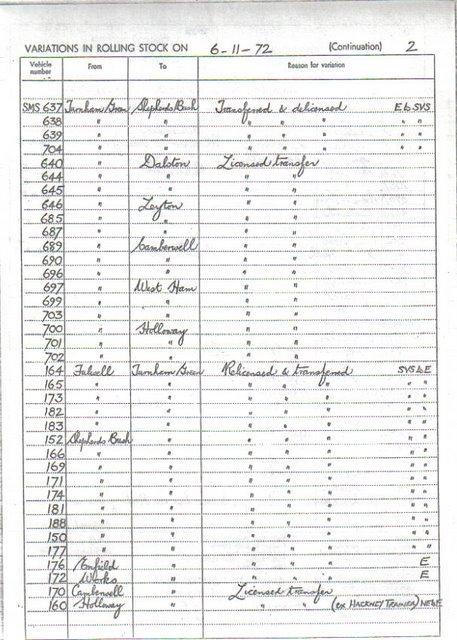 VARIATIONS IN ROLLING STOCK ON 6-11-72 (Continuation) 2
Vehicle number From To Reason for variation
SMS 637 Turnham Green Shepherds Bush Transferred & delicensed E to SVS
638 " " " " " " "
639 " " " " " " "
704 " " " " " " "
640 " Dalston Licensed transfer
644 " " " "
645 " " " "
646 " Leyton " "
685 " " " "
687 " " " "
689 " Camberwell " "
690 " " " "
696 " " " "
697 " West Ham " "
699 " " " "
703 " " " "
700 " Holloway " "
701 " " " "
702 " " " "
164 Fulwell Turnham Green Relicensed & transferred SVS to E
165 " " " " " " "
173 " " " " " " "
182 " " " " " " "
183 " " " " " " "
152 Shepherds Bush " " " " " "
166 " " " " " " "
169 " " " " " " "
171 " " " " " " "
174 " " " " " " "
181 " " " " " " "
188 " " " " " " "
150 " " " " " " "
177 " " " " " " "
176 Enfield " " " " E
172 Works " " " " E
170 Camberwell " Licensed transfer
160 Holloway " " " (ex HACKNEY TRAINER) NE to E